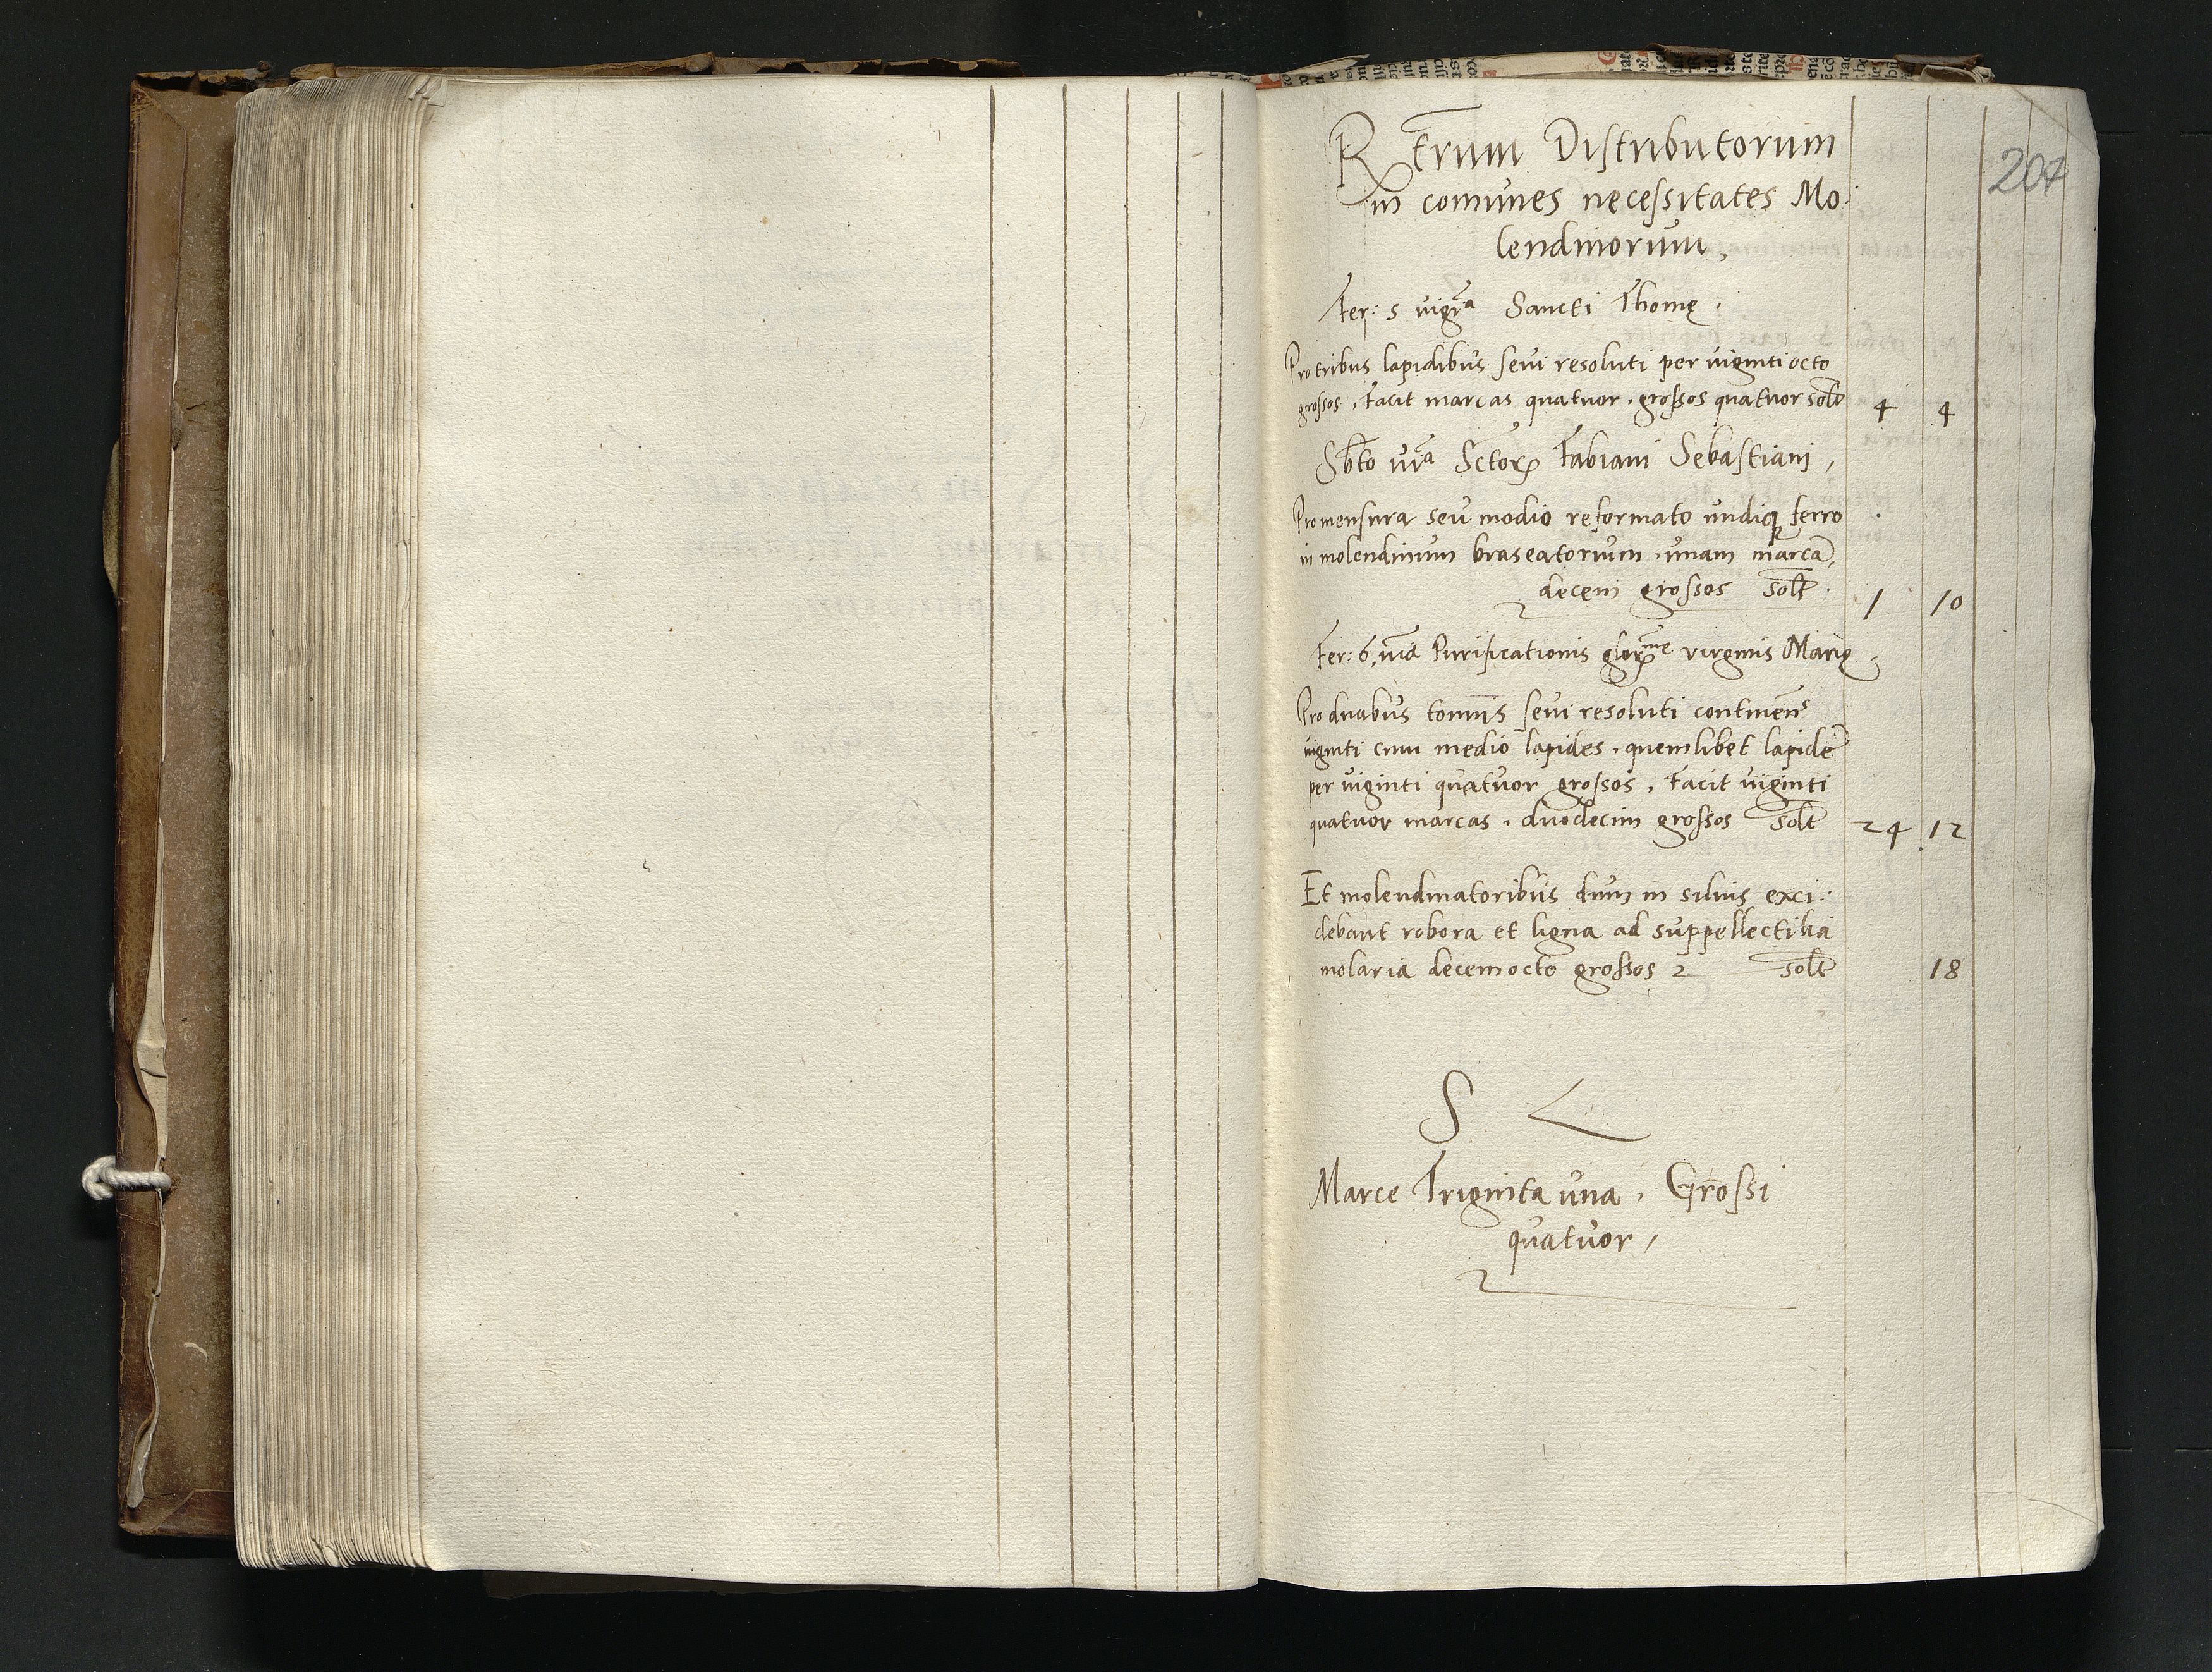 207
R̄trum Distributorum
in comunes necessitates Mo:
lendinorum,
Fer: 5 vigīa Sancti Thome,
Pro tribus lapidibus sevi resoluti per viginti octo
grossos, Facit marcas quatuor, grossos quatuor solt 4 4
Sbto vīa Sctor Fabiani Sebastiani,
Pro mensura seu modio reformato undiq ferro
in molendinum braseatorium, unam marcā,
decem grossos solt 1 10
Fer: 6, vīa Purificationis glor me virginis Marie,
Pro duabus tonnis sevi resoluti continēns
viginti cum medio lapides, quemlibet lapidē
per viginti quatuor grossos, Facit viginti
quatuor marcas, duodecim grossos solt 24 12
Et molendinatoribus dum in siluis exci:
debant robora et ligna ad suppellectilia
molaria decemocto grossos solt 18
S L
Marce Triginta una, Grossi
quatuor,